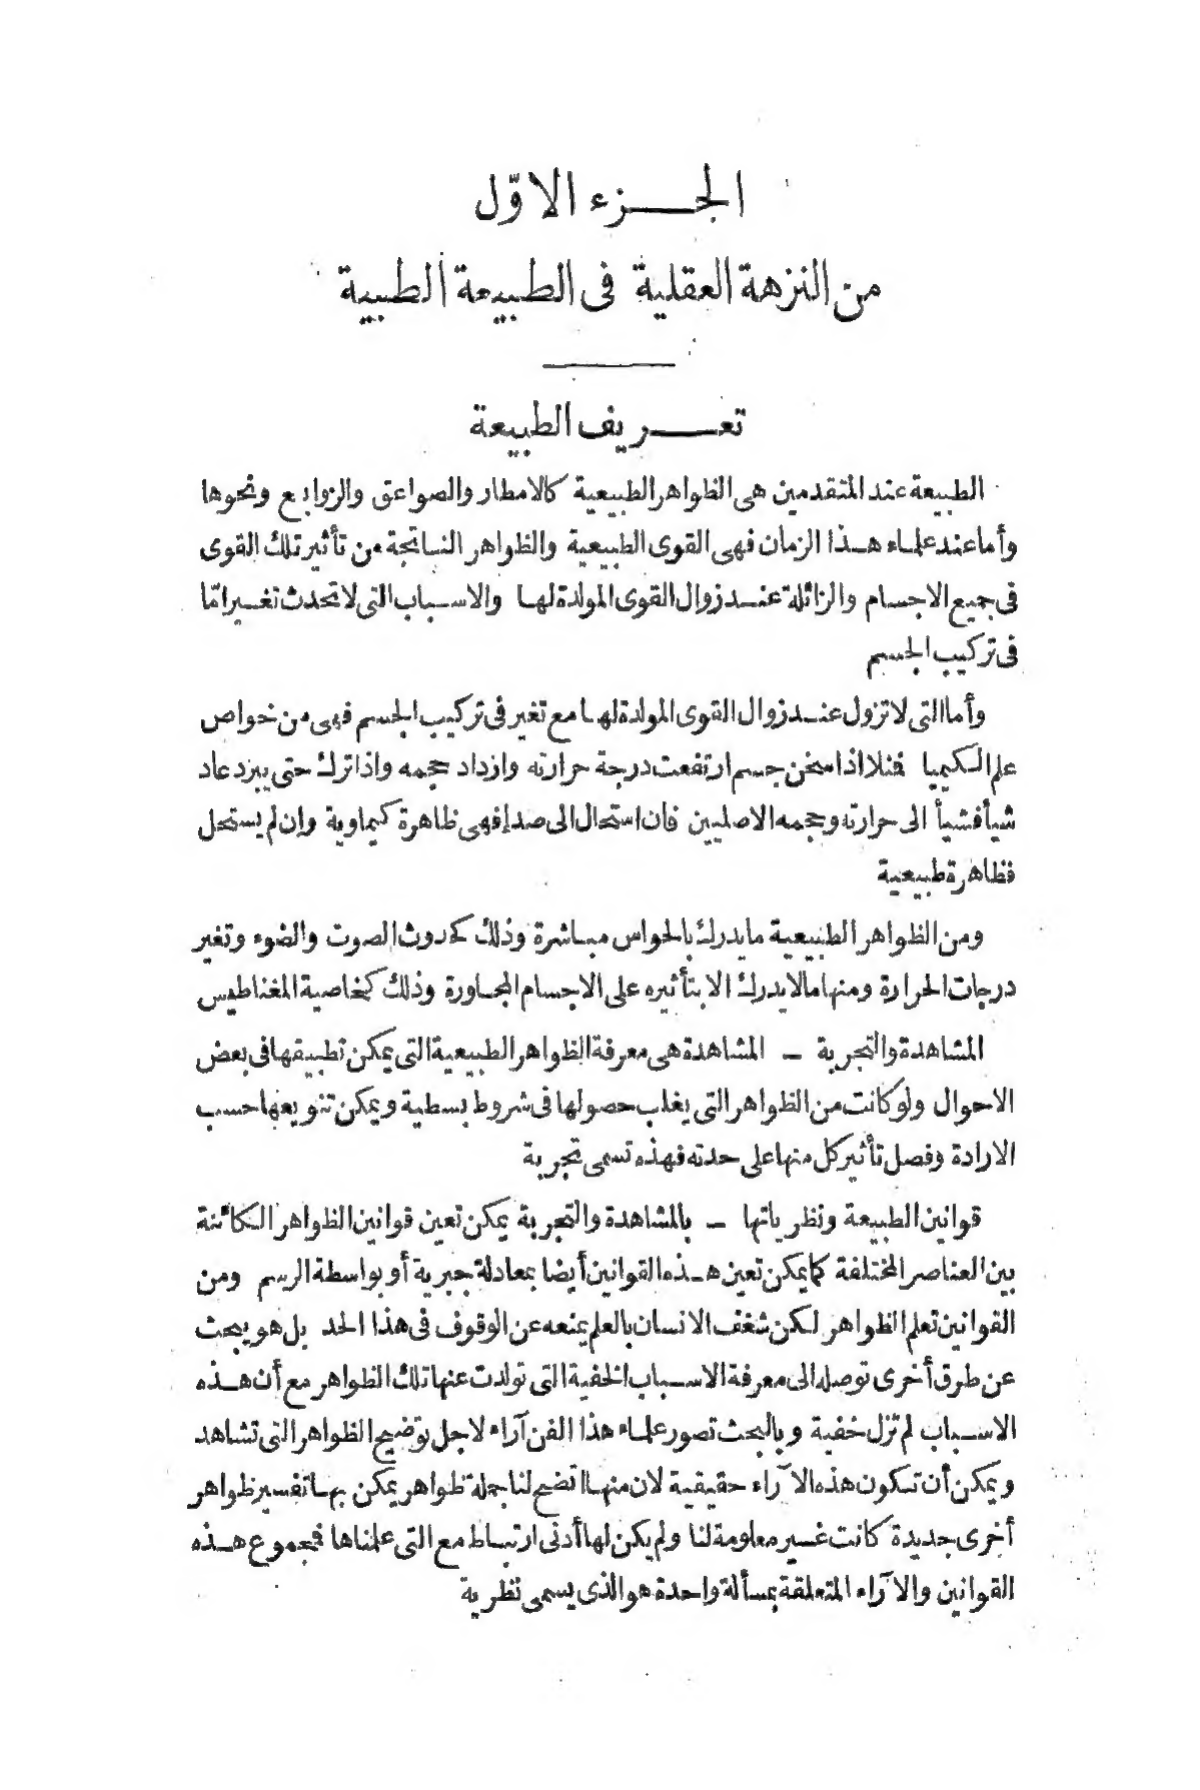 الجزء الاوّل
من النزهة العقلية فى الطبيعة الطبية
تعريف الطبيعة
الطبيعة عند المتقدمين هى الظواهر الطبيعية كالامطار والصواعق والزوابع ونحوها
وأما عند علماء هذا الزمان فهى القوى الطبيعية والظواهر الناتجة من تأثير تلك القوى
فى جميع الاجسام والزائلة عند زوال القوى المولدة لها والاسباب التى لا تحدث تغيرا مّا
فى تركيب الجسم
وأما التى لا تزول عند زوال القوى المولدة لها مع تغير فى تركيب الجسم فهى من خواص
علم الكيميا فمثلا اذا سخن جسم ارتفعت درجة حرارته وازداد حجمه واذا ترك حتى يبرد عاد
شيأ فشيأ الى حرارته وحجمه الاصليين فان استحال الى صدإ فهى ظاهرة كيماوية وان لم يستحل
فظاهرة طبيعية
ومن الظواهر الطبيعية ما يدرك بالحواس مباشرة وذلك كحدوث الصوت والضوء وتغير
درجات الحرارة ومنها ما لا يدرك الا بتأثيره على الاجسام المجاورة وذلك كخاصية المغناطيس
المشاهدة والتجربة ـ المشاهدة هى معرفة الظواهر الطبيعية التى يمكن تطبيقها فى بعض
الاحوال ولو كانت من الظواهر التى يغلب حصولها فى شروط بسطية ويمكن تنويعها حسب
الارادة وفصل تأثير كل منها على حدته فهذه تسمى تجربة
قوانين الطبيعة ونظرياتها ـ بالمشاهدة والتجربة يمكن تعين قوانين الظواهر الكائنة
بين العناصر المختلفة كما يمكن تعين هذه القوانين أيضا بمعادلة جبرية أو بواسطة الرسم ومن
القوانين تعلم الظواهر لكن شغف الانسان بالعلم يمنعه عن الوقوف فى هذا الحد بل هو يبحث
عن طرق أخرى توصله الى معرفة الاسباب الخفية التى تولدت عنها تلك الظواهر مع أن هذه
الاسباب لم تزل خفية وبالبحث تصور علماء هذا الفن آراء لاجل توضيح الظواهر التى تشاهد
ويمكن أن تكون هذه الآراء حقيقية لان منها اتضح لنا جملة ظواهر يمكن بها تفسير ظواهر
أخرى جديدة كانت غير معلومة لنا ولم يكن لها أدنى ارتباط مع التى علمناها فمجموع هذه
القوانين والآراء المتعلقة بمسألة واحدة هو الذى يسمى نظرية